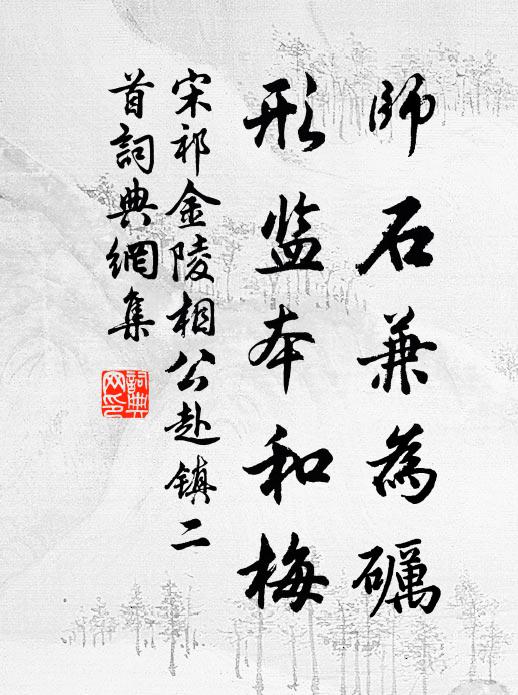 師石兼為礪
形监本和梅
宋祁金陵相公赴镇二
首詞典網集
詞典網印